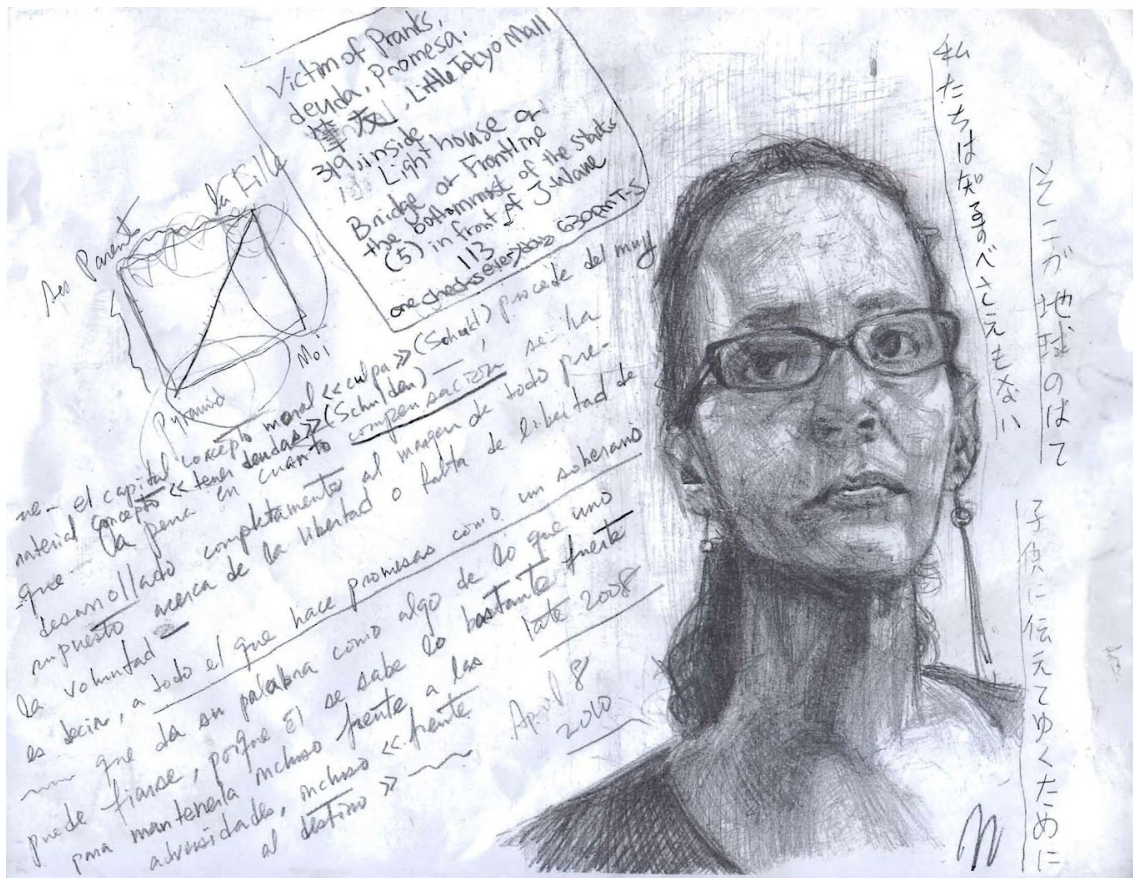 Victim of Pranks,
deuda, promesa.
筆友, Little Tokyo Mall
319, inside
Lighthouse or
Bridge or Frontline
the bottommost of the stacks
(5) in front of J-Wave
113
one checks every box G30ANT-S
la Fille
des Parents
Moi
Pyramid
ne- el capital concepto moral «culpa» (Schuld) procede del muy
material concepto «tener deudas» (Schulden) —
que la pena en cuanto compensación se ha
desarrollado completamente al margen de todo pre-
supuesto acerca de la libertad o falta de libertad de
la voluntad
es decir, a todo el que hace promesas como un soberano
que da su palabra como algo de lo que uno
puede fiarse, porque él se sabe lo bastante fuerte
para mantenerla incluso frente a las
adversidades, incluso «frente
al destino»
late 2008
April 8
2010
私たちは知るすべさえもない
そこが地球のはて
子供に伝えてゆくために